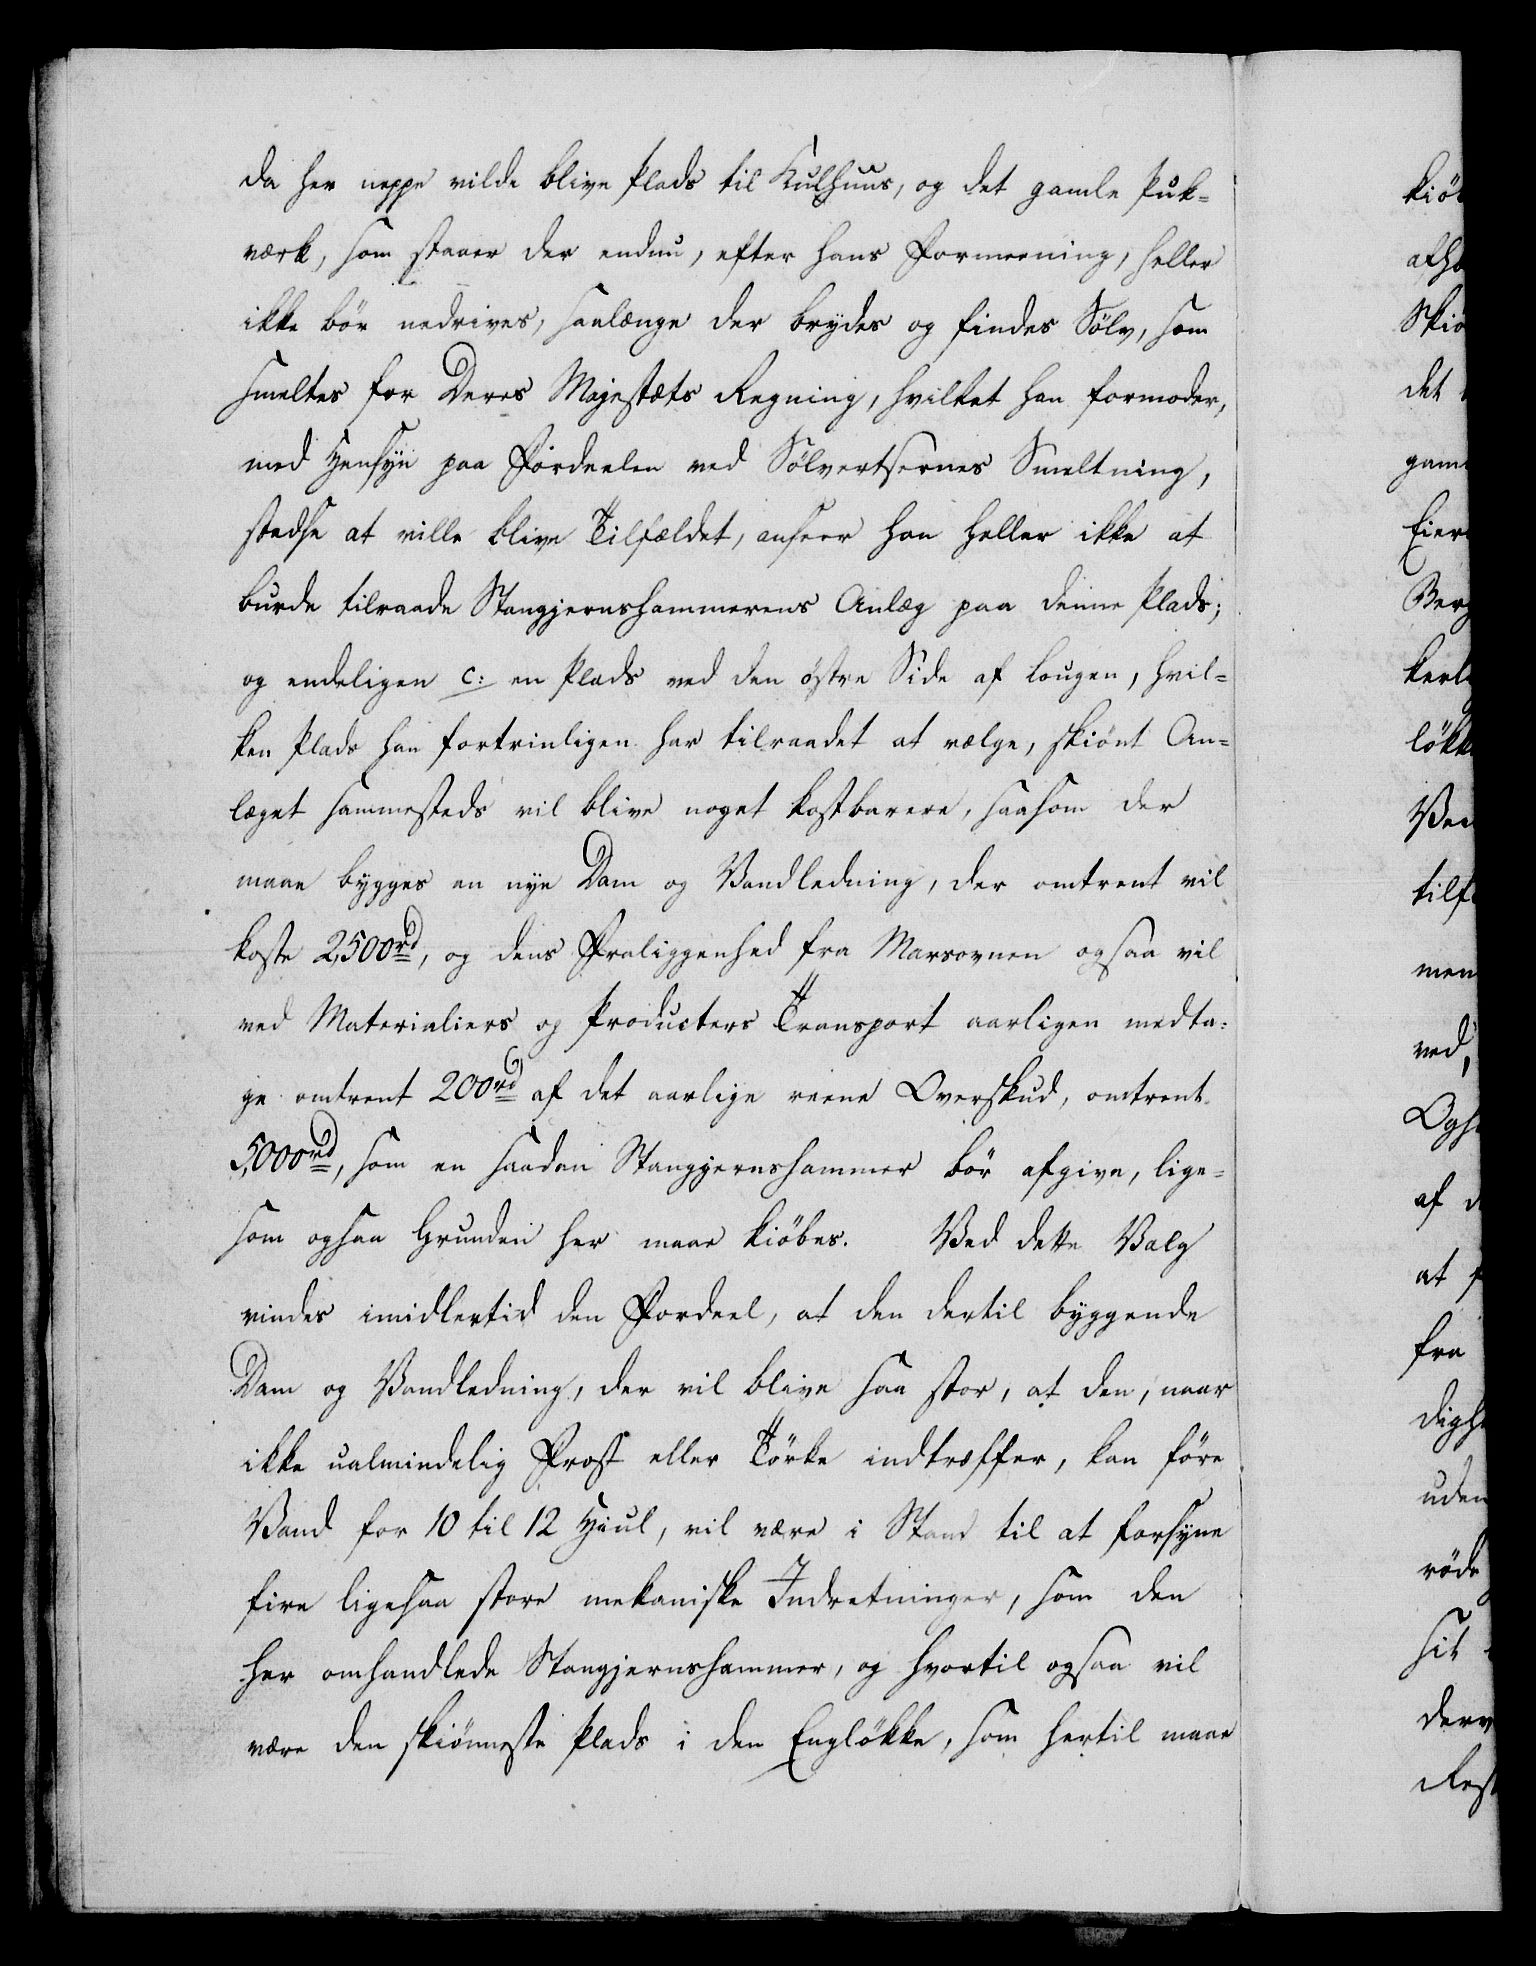 da her neppe vilde blive Plads til Kulhuus, og det gamle Puk-
værk, som staaer der endnu, efter hans Formeening, heller
ikke bör nedrives, saalænge der brydes og findes Sölv, som
smeltes for Deres Majestæts Regning, hvilket han formoder,
med Hensyn paa Fordeelen ved Sölvertsernes Smeltning,
stedse at ville blive Tilfældet, anseer han heller ikke at
burde tilraade Stangjernshammerens Anlæg paa denne Plads;
og endeligen c: en Plads ved den östre Side af Lougen, hvil-
ken Plads han fortrinligen har tilraadet at vælge, skiönt An-
læget sammesteds vil blive noget kostbarere, saasom der
maae bygges en nye Dam og Vandledning, der omtrent vil
koste 2,500rd, og dens Fraliggenhed fra Marsovnen ogsaa vil
ved Materialiers og Producters Transport aarligen medta-
ge omtrent 200rd af det aarlige reene Overskud, omtrent
5,000rd, som en saadan Stangjernshammer bör afgive, lige-
som ogsaa Grunden her maae kiöbes. Ved dette Valg
vindes imidlertid den Fordeel, at den dertil byggende
Dam og Vandledning, der vil blive saa stor, at den, naar
ikke ualmindelig Frost eller Törke indtræffer, kan före
Vand for 10 til 12 Hiul, vil være i Stand til at forsyne
fire ligesaa store mekaniske Indretninger, som den
her omhandlede Stangjernshammer, og hvortil ogsaa vil
være den skiönneste Plads i den Englökke, som hertil maae